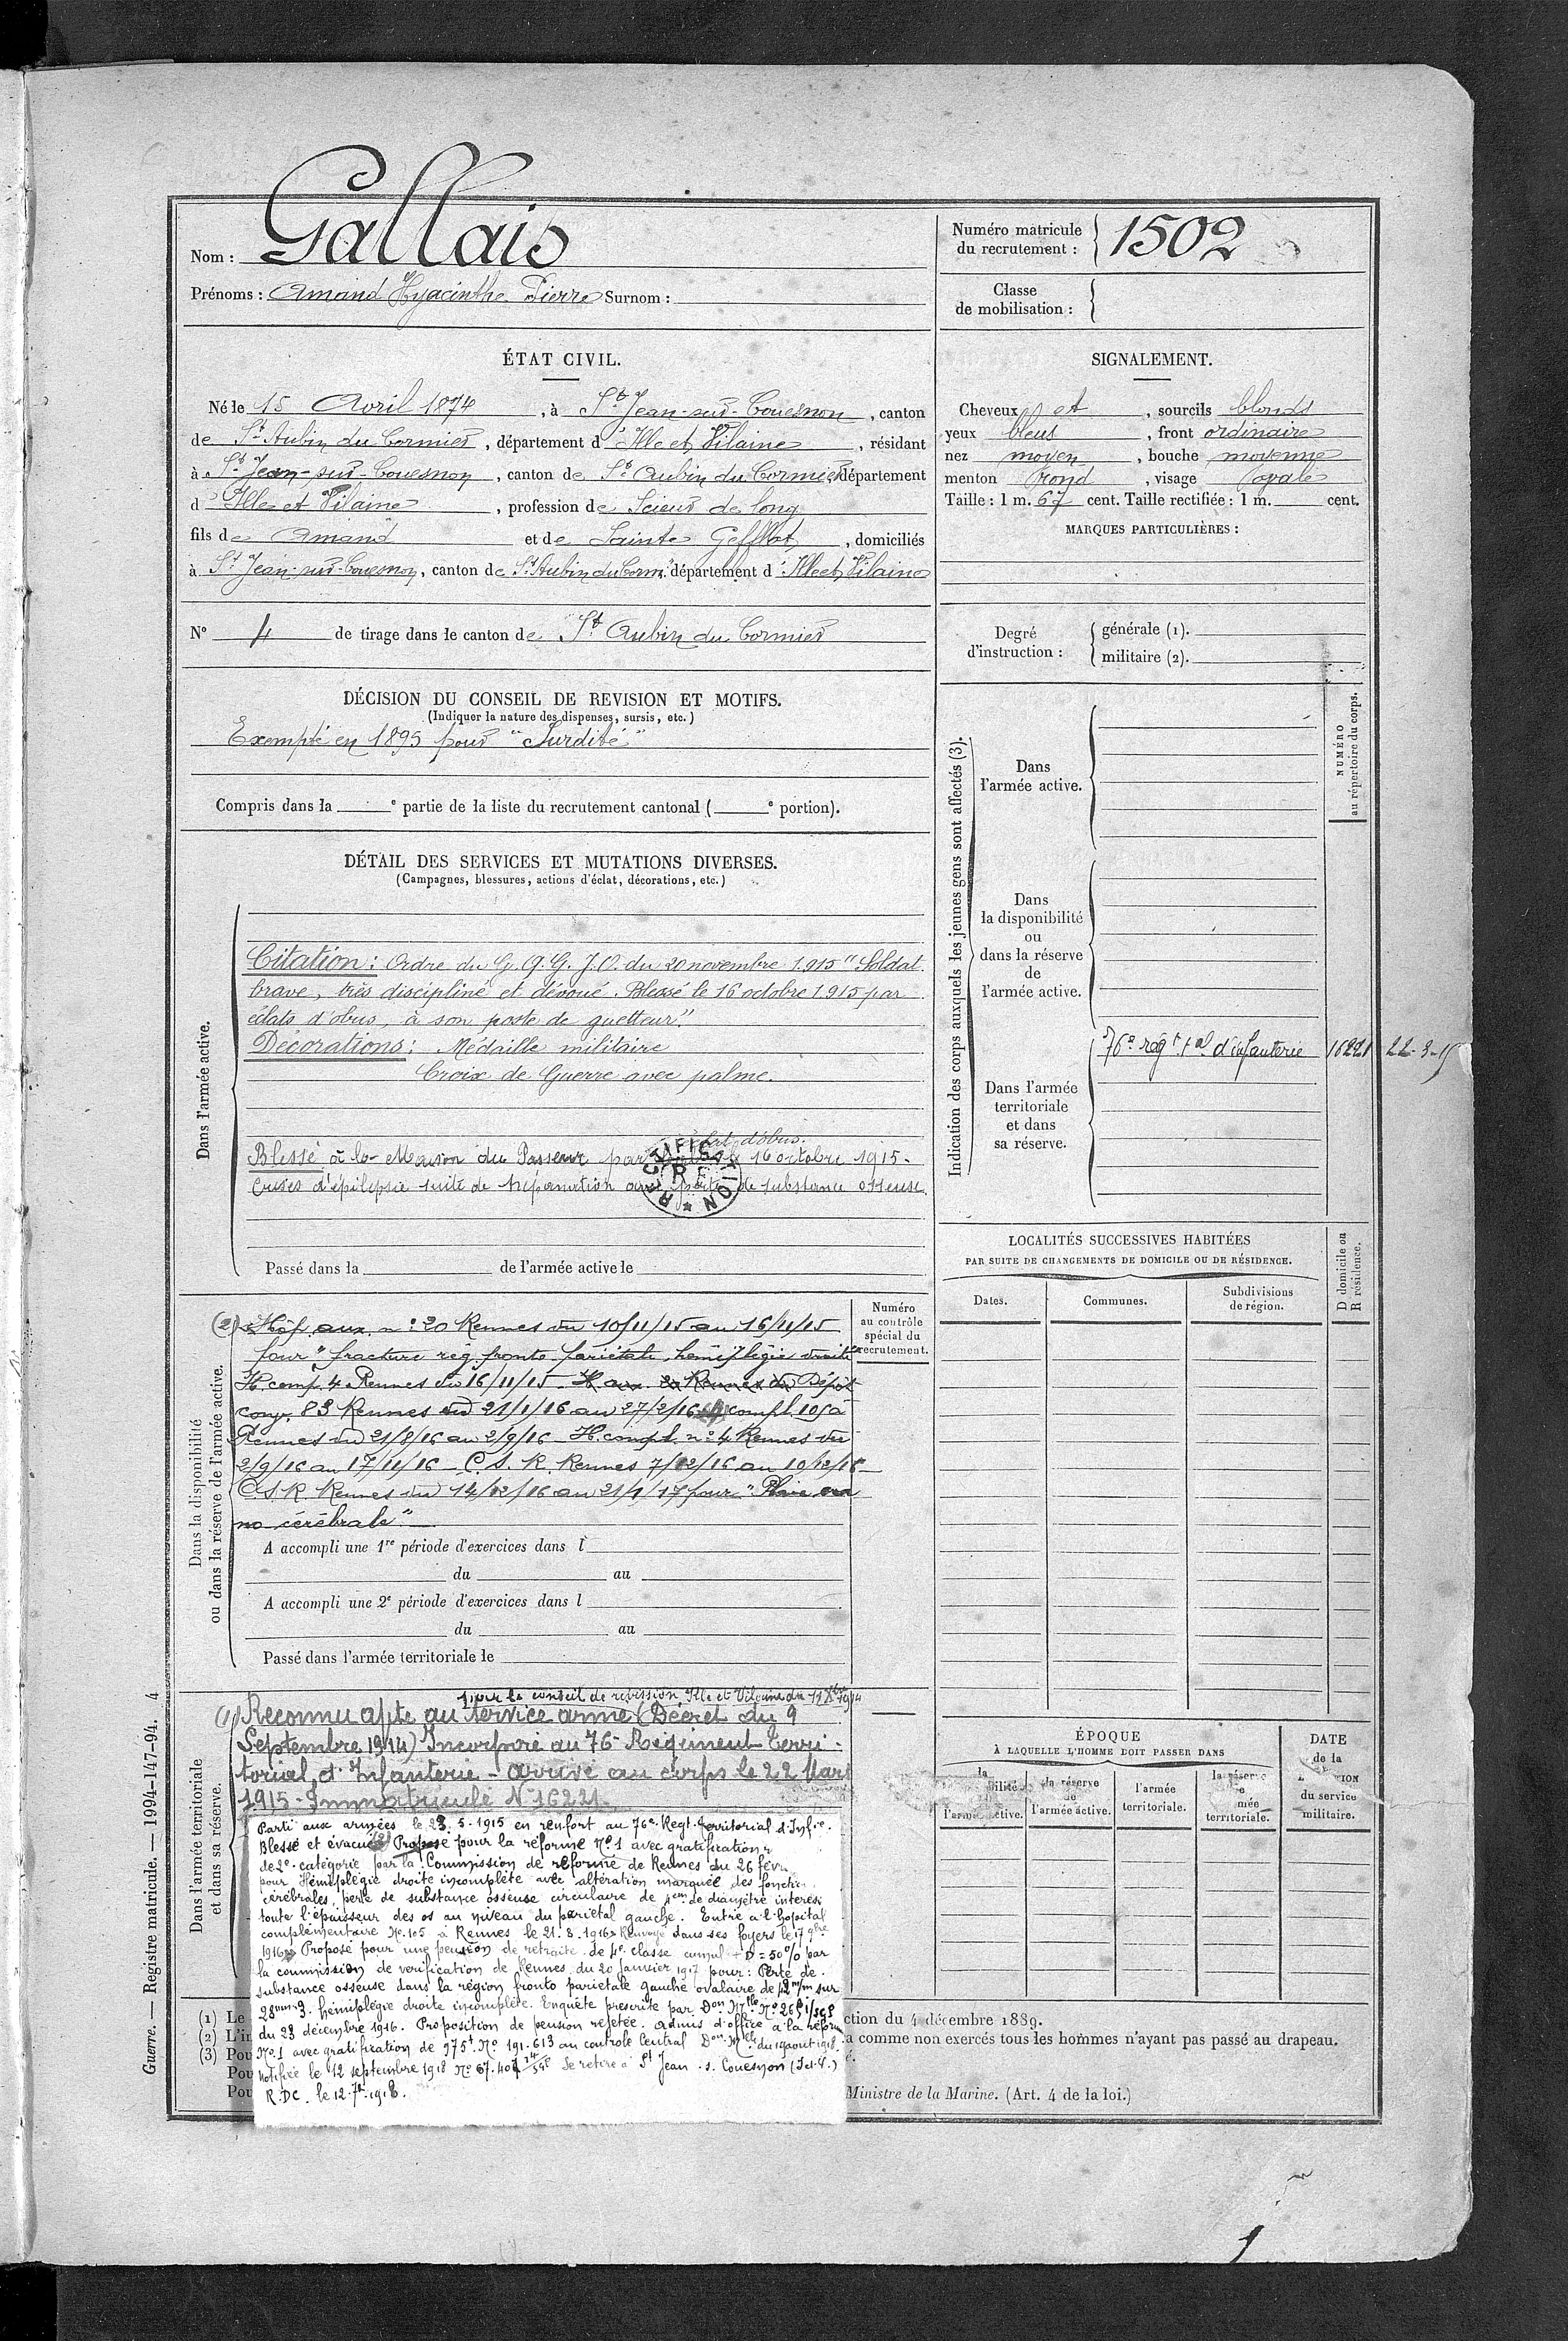 Nom : Gallais
Prénoms : Amand Hyacinthe Pierre Surnom :
Numéro matricule
du recrutement : 1502
Classe
de mobilisation :
ÉTAT CIVIL.
Né le 15 Avril 1874, à St Jean-sur-Couesnon, canton
de St Aubin du Cormier, département d'Ille et Vilaine, résidant
à St Jean-sur-Couesnon, canton de St Aubin du Cormier département
d'Ille et Vilaine, profession de Scieur de long
fils de Amand et de Sainte Gefflot, domiciliés
à St Jean-sur-Couesnon, canton de St Aubin du Corm. département d'Ille et Vilaine
N° 4 de tirage dans le canton de St Aubin du Cormier
SIGNALEMENT.
Cheveux et, sourcils blonds
yeux bleus, front ordinaire
nez moyen, bouche moyenne
menton rond, visage ovale
Taille : 1 m. 67 cent. Taille rectifiée : 1 m. cent.
MARQUES PARTICULIÈRES :
Degré
d'instruction :
générale (1).
militaire (2).
DÉCISION DU CONSEIL DE REVISION ET MOTIFS.
(Indiquer la nature des dispenses, sursis, etc.)
Exempté en 1895 pour "Surdité"
Compris dans la e partie de la liste du recrutement cantonal ( e portion).
DÉTAIL DES SERVICES ET MUTATIONS DIVERSES.
(Campagnes, blessures, actions d'éclat, décorations, etc.)
Dans l'armée active.
Citation : Ordre du G.Q.G. J.O. du 20 novembre 1915 "Soldat
brave, très discipliné et dévoué. Blessé le 16 octobre 1915 par
éclats d'obus, à son poste de guetteur."
Décorations : Médaille militaire
Croix de Guerre avec palme.
éclat d'obus.
Blessé à la Maison du Passeur par le 16 octobre 1915.
Crises d'épilepsie suite de trépanation avec perte de substance osseuse.
RECTIFICATION
R F
Passé dans la de l'armée active le
Indication des corps auxquels les jeunes gens sont affectés (3).
NUMÉRO
au répertoire du corps.
Dans
l'armée active.
Dans
la disponibilité
ou
dans la réserve
de
l'armée active.
Dans l'armée
territoriale
et dans
sa réserve.
76e régt tal d'infanterie 16221 22-3-15
LOCALITÉS SUCCESSIVES HABITÉES
PAR SUITE DE CHANGEMENTS DE DOMICILE OU DE RÉSIDENCE.
Dates.
Communes.
Subdivisions
de région.
D domicile ou
R résidence.
Dans la disponibilité
ou dans la réserve de l'armée active.
Numéro
au contrôle
spécial du
recrutement.
(2) Hôp. aux. n° 20 Rennes du 10/11/15 au 16/11/15
pour "fracture rég. fronto pariétale, hémiplégie droite
H. comp. 4 Rennes du 16/11/15 - H aux. 20 Rennes du Dépôt
conv. 83 Rennes du 21/1/16 au 27/2/16 H compl. 105 à
Rennes du 21/8/16 au 2/9/16 - H. compl. n° 4 Rennes du
2/9/16 au 17/11/16 - C. S. R. Rennes 7/12/16 au 10/12/16 -
C.S.R. Rennes du 14/12/16 au 21/1/17 pour "Plaie
cérébrale".
A accompli une 1re période d'exercices dans l
du au
A accompli une 2e période d'exercices dans l
du au
Passé dans l'armée territoriale le
Dans l'armée territoriale
et dans sa réserve.
par le conseil de révision Ille et Vilaine du
(1) Reconnu apte au service armé (Décret du 9
Septembre 1914) Incorporé au 76e Régiment Terri-
torial d'Infanterie - arrivé au corps le 22 Mars
1915 - Immatriculé N° 16221
Parti aux armées le 23. 5. 1915 en renfort au 76e Regt. Territorial d'Infie.
Blessé et évacué Proposé pour la réforme No. 1 avec gratification
de 2e catégorie par la Commission de réforme de Rennes du 26 févr
pour Hémiplégie droite incomplète avec altération marquée des fonctio
cérébrales, perte de substance osseuse circulaire de 4 cm de diamètre interes
toute l'épaisseur des os au niveau du pariétal gauche. Entré à l'hôpital
complémentaire No. 105 à Rennes le 21. 8. 1916 Renvoyé dans ses foyers le 17 9bre
1916 Proposé pour une pension de retraite de 4e classe cumul + D = 50% par
la commission de vérification de Rennes du 20 Janvier 1917 pour : Perte de
substance osseuse dans la région fronto pariétale gauche ovalaire de 42 m/m sur
28 mm. 3. hémiplégie droite incomplète. Enquête prescrite par Don Mlle No
du 23 décembre 1916. Proposition de pension rejetée. admis d'office à la réfor
No. 1 avec gratification de 975f No. 191.613 au contrôle Central Don Mlle du 14 aout 1918.
Notifiée le 12 septembre 1918 No 67.407 Se retire à St Jean s. Couesnon (I.et.V.)
R.D.C. le 12. 7bre 1918.
ÉPOQUE
À LAQUELLE L'HOMME DOIT PASSER DANS
la réserve
de
l'armée active.
l'armée
territoriale.
DATE
de la
du service
militaire.
(1) Le ction du 4 décembre 1889.
(2) L'in a comme non exercés tous les hommes n'ayant pas passé au drapeau.
(3) Pou é.
Pou
Pou Ministre de la Marine. (Art. 4 de la loi.)
Guerre. — Registre matricule. — 1994-147-94. 4